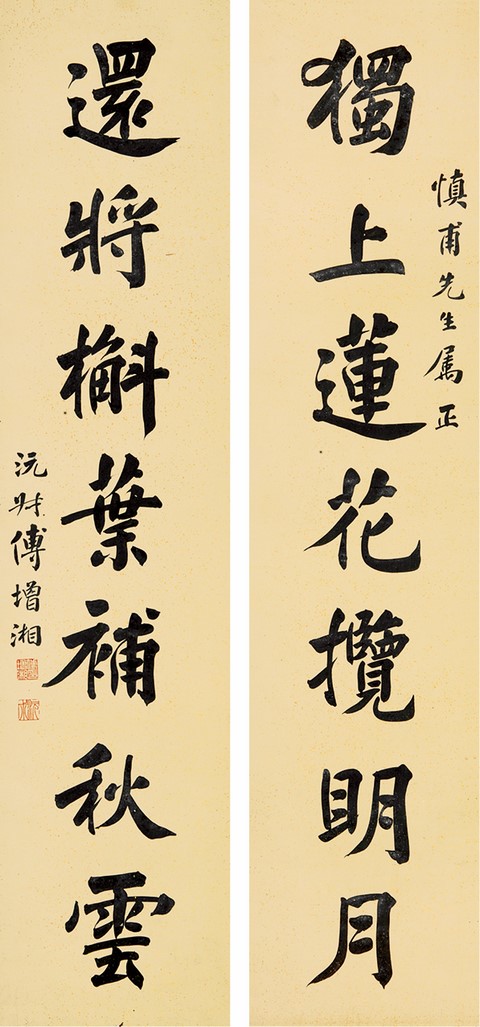 慎甫先生属正
獨上蓮花攬眀月
還將槲葉補秋雲
沅叔傅增湘